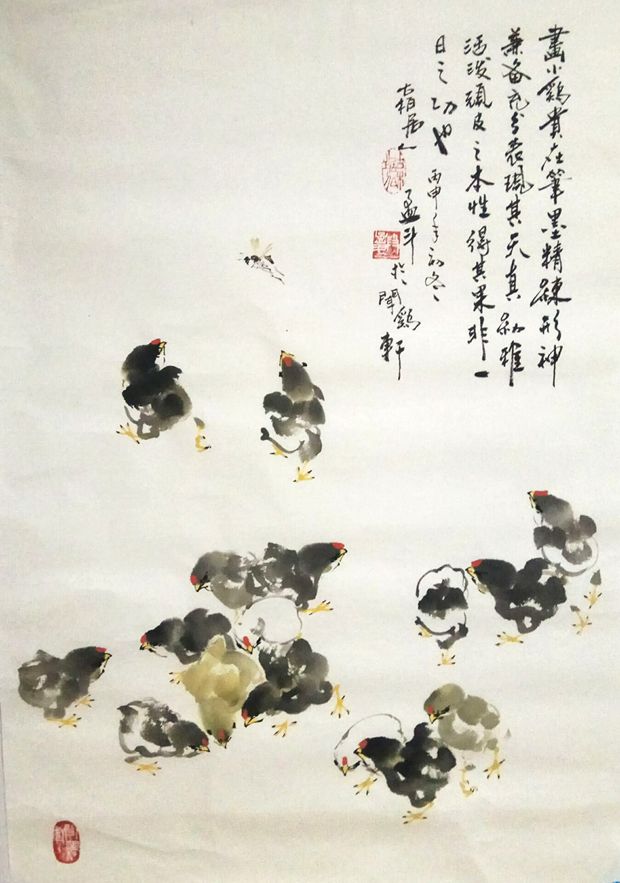 畫小鷄貴在筆墨精練形神
兼备充分表現其天真幼稚
活泼頑皮之本性得其果非一
日之功也 丙申年初冬
孟斗 於聞鷄軒